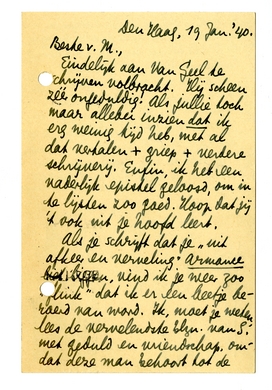 Den Haag, 19 Jan. '40.
Beste v. M.,
Eindelijk aan Van Geel te
schrijven volbracht. Hij scheen
zéé ongeduldig! Als jullie toch
maar allebei inzien dat ik
erg weinig tijd heb, met al
dat vertalen + griep + verdere
schrijverij. Enfin, ik heb een
vaderlijk epistel geloosd, om in
de lijsten zoo goed. Hoop dat jij
't ook uit je hoofd leert.
Als je schrijft dat je "uit
afkeer en verveling" Armance
vind ik je weer zoo
"flink" dat ik er een beetje be-
roerd van word. Ik moet je weer
lees de vervelendste van S.:
met geduld en vriendschap, om-
dat deze man behoort tot de